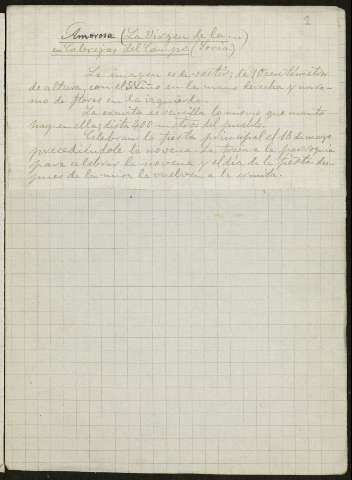 1
Amorosa (La Virgen de la)
en Cabrejas del Campo (Soria)
La imagen es de vestir, de 90 centímetros
de altura, con el Niño en la mano derecha y un ra-
mo de flores en la izquierda.
La ermita es sencilla lo mismo que cuanto
hay en ella; dista 400 metros del pueblo.
Celebran la fiesta principal el 18 de mayo
precediéndole la novena. La traen a la parroquia
para celebrar la novena y el día de la fiesta des-
pues de la misa la vuelven a la ermita.